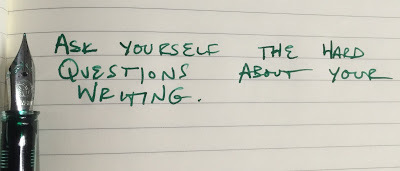 ASK YOURSELF THE HARD
QUESTIONS ABOUT YOUR
WRITING.